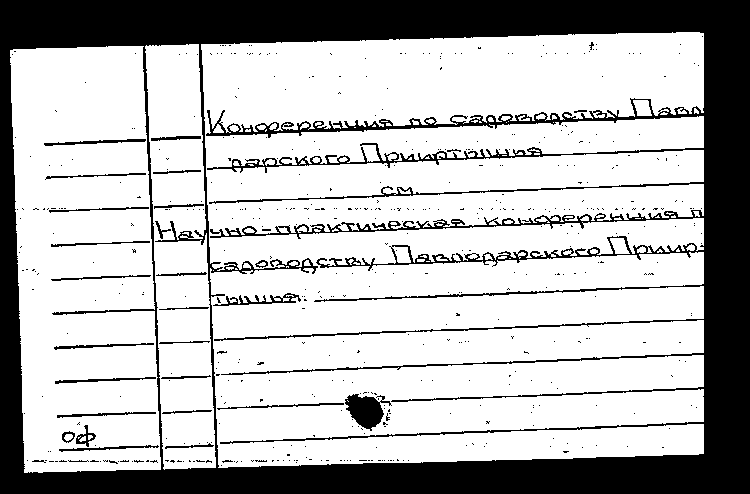 Конференция по садоводству Павло
дарского Прииртышия
см.
Научно-практическая конференция п
садоводству Павлодарского Приир-
тышья.
оф